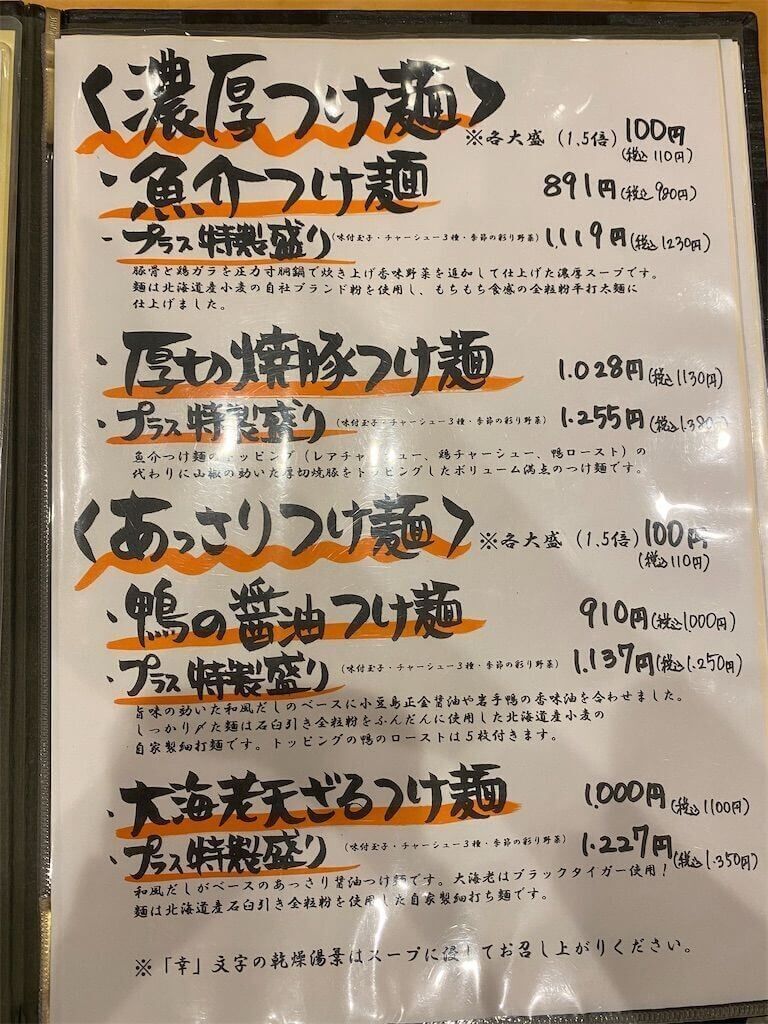 〈濃厚つけ麺〉 ※各大盛(1.5倍) 100円
(税込110円)
・魚介つけ麺 891円(税込980円)
・プラス特製盛り(味付玉子・チャーシュー3種・季節の彩り野菜) 1,119円(税込1230円)
豚骨と鶏ガラを圧力寸胴鍋で炊き上げ香味野菜を追加して仕上げた濃厚スープです。
麺は北海道産小麦の自社ブランド粉を使用し、もちもち食感の全粒粉平打太麺に
仕上げました。
・厚切焼豚つけ麺 1.028円(税込1130円)
・プラス特製盛り(味付玉子・チャーシュー3種・季節の彩り野菜) 1.255円(税込1.380円)
魚介つけ麺のトッピング(レアチャーシュー、鶏チャーシュー、鴨ロースト)の
代わりに山椒の効いた厚切焼豚をトッピングしたボリューム満点のつけ麺です。
〈あっさりつけ麺〉 ※各大盛(1.5倍) 100円
(税込110円)
・鴨の醤油つけ麺 910円(税込1.000円)
・プラス特製盛り(味付玉子・チャーシュー3種・季節の彩り野菜) 1.137円(税込1.250円)
旨味の効いた和風だしのベースに小豆島正金醤油や岩手鴨の香味油を合わせました。
しっかり〆た麺は石臼引き全粒粉をふんだんに使用した北海道産小麦の
自家製細打麺です。トッピングの鴨のローストは5枚付きます。
・大海老天ざるつけ麺 1.000円(税込1100円)
・プラス特製盛り(味付玉子・チャーシュー3種・季節の彩り野菜) 1.227円(税込1.350円)
和風だしがベースのあっさり醤油つけ麺です。大海老はブラックタイガー使用!
麺は北海道産石臼引き全粒粉を使用した自家製細打ち麺です。
※「幸」文字の乾燥湯葉はスープに浸してお召し上がりください。